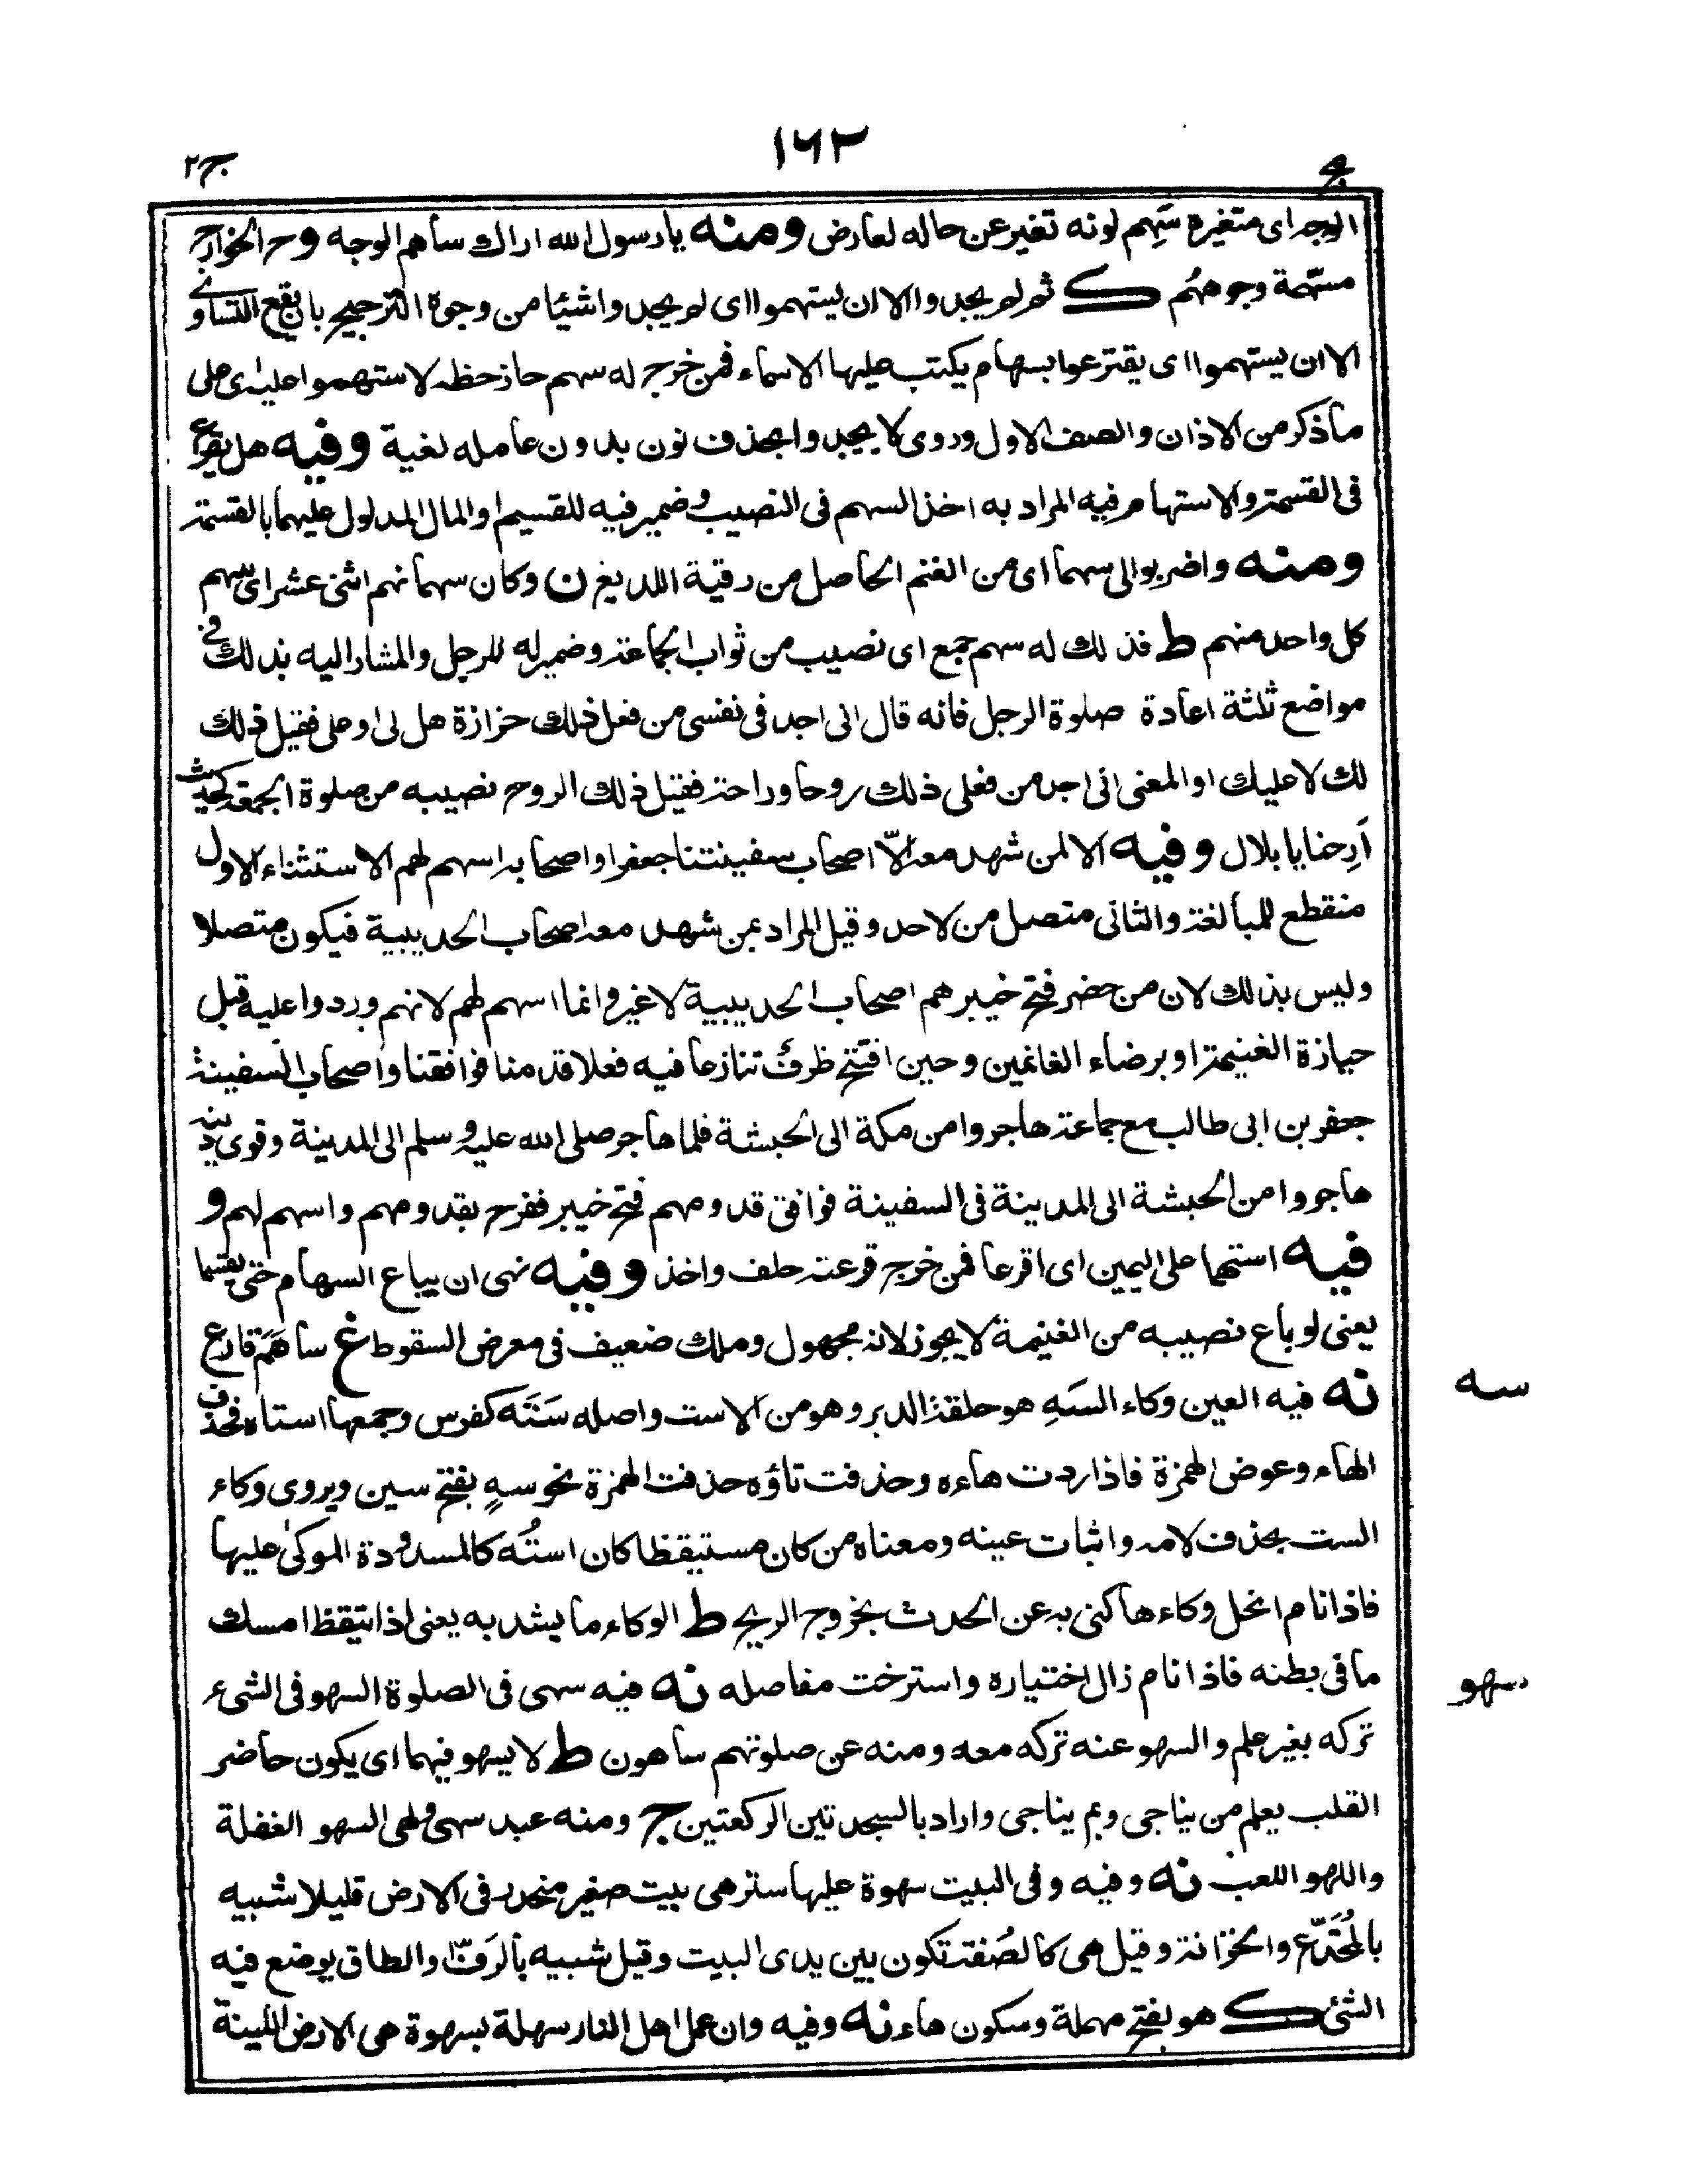 ١٦٢
ج٢
الوجه اى متغيره سَهِم لونه تغير عن حاله لعارض ومنه يا رسول الله اراك ساهم الوجه وح الخوارج
مسهمة وجوههُم ك ثم لم يجدوا الا ان يستهموا اى لم يجدوا شيئا من وجوه الترجيح بان يقع التساوى
الا ان يستهموا اى يقترعوا بسهام يكتب عليها الاسماء فمن خرج له سهم حاز حظه لاستهموا عليه اى على
ما ذكر من الاذان والصف الاول وروى لا يجدوا بحذف نون بدون عامله لغية وفيه هل يقرع
فى القسمة والاستهام فيه المراد به اخذ السهم فى النصيب وضمير فيه للقسيم او المال المدلول عليهما بالقسمة
ومنه واضربوا لى سهما اى من الغنم الحاصل من رقية اللديغ ن وكان سهمانهم اثنى عشر اى سهم
كل واحد منهم ط فذلك له سهم جمع اى نصيب من ثواب الجماعة وضمير له للرجل والمشار اليه بذلك فى
مواضع ثلثة اعادة صلوة الرجل فانه قال انى اجد فى نفسى من فعل ذلك حزازة هل لى او على فقيل ذلك
لك لا عليك او المعنى انى اجد من فعلى ذلك روحا وراحة فقيل ذلك الروح نصيبه من صلوة الجمعة كحديث
اَرِحنا يا بلال وفيه الا لمن شهد معه الّا اصحاب سفينتنا جعفرا واصحابه اسهم لهم الاستثناء الاول
منقطع للمبالغة والثانى متصل من لاحد وقيل المراد بمن شهد معه اصحاب الحديبية فيكون متصلا
وليس بذلك لان من حضر فتح خيبر هم اصحاب الحديبية لا غير وانما اسهم لهم لانهم وردوا عليه قبل
حيازة الغنيمة او برضاء الغانمين وحين افتتح ظرف تنازعا فيه فعلا قدمنا فوافقنا واصحاب السفينة
جعفر بن ابى طالب مع جماعة هاجروا من مكة الى الحبشة فلما هاجر صلى الله عليه وسلم الى المدينة وقوى دينه
هاجروا من الحبشة الى المدينة فى السفينة فوافق قدومهم فتح خيبر ففرح بقدومهم واسهم لهم و
فيه استهما على اليمين اى اقرعا فمن خرج قرعته حلف واخذ وفيه نهى ان يباع السهام حتى يقسما
يعنى لو باع نصيبه من الغنيمة لا يجوز لانه مجهول وملك ضعيف فى معرض السقوط غ ساهَمَ قارع
سه
نه فيه العين وكاء السَهِ هو حلقة الدبر وهو من الاست واصله سَتَه كفرس وجمعها استاه فحذف
الهاء وعوض الهمزة فاذا ردت هاءه وحذفت تاؤه حذفت الهمزة نحو سهٍ بفتح سين ويروى وكاء
الست بحذف لامه واثبات عينه ومعناه من كان مستيقظا كان استُه كالمسدودة الموكىٰ عليها
فاذا نام انحل وكاءها كنى به عن الحدث بخروج الريح ط الوكاء ما يشد به يعنى اذا تيقظ امسك
ما فى بطنه فاذا نام زال اختياره واسترخت مفاصله نه فيه سهى فى الصلوة السهو فى الشىء
سهو
تركه بغير علم والسهو عنه تركه معه ومنه عن صلوتهم ساهون ط لا يسهو فيهما اى يكون حاضر
القلب يعلم من يناجى وبم يناجى واراد بالسجدتين الركعتين ج ومنه عبد سهى ولهى السهو الغفلة
واللهو اللعب نه وفيه وفى البيت سهوة عليها ستر هى بيت صغير منحدر فى الارض قليلا شبيه
بالمُخَدّع والخزانة وقيل هى كالصُفة تكون بين يدى البيت وقيل شبيه بالرَفّ والطاق يوضع فيه
الشئ ك هو بفتح مهملة وسكون هاء نه وفيه وان عمل اهل النار سهلة بسهوة هى الارض اللينة